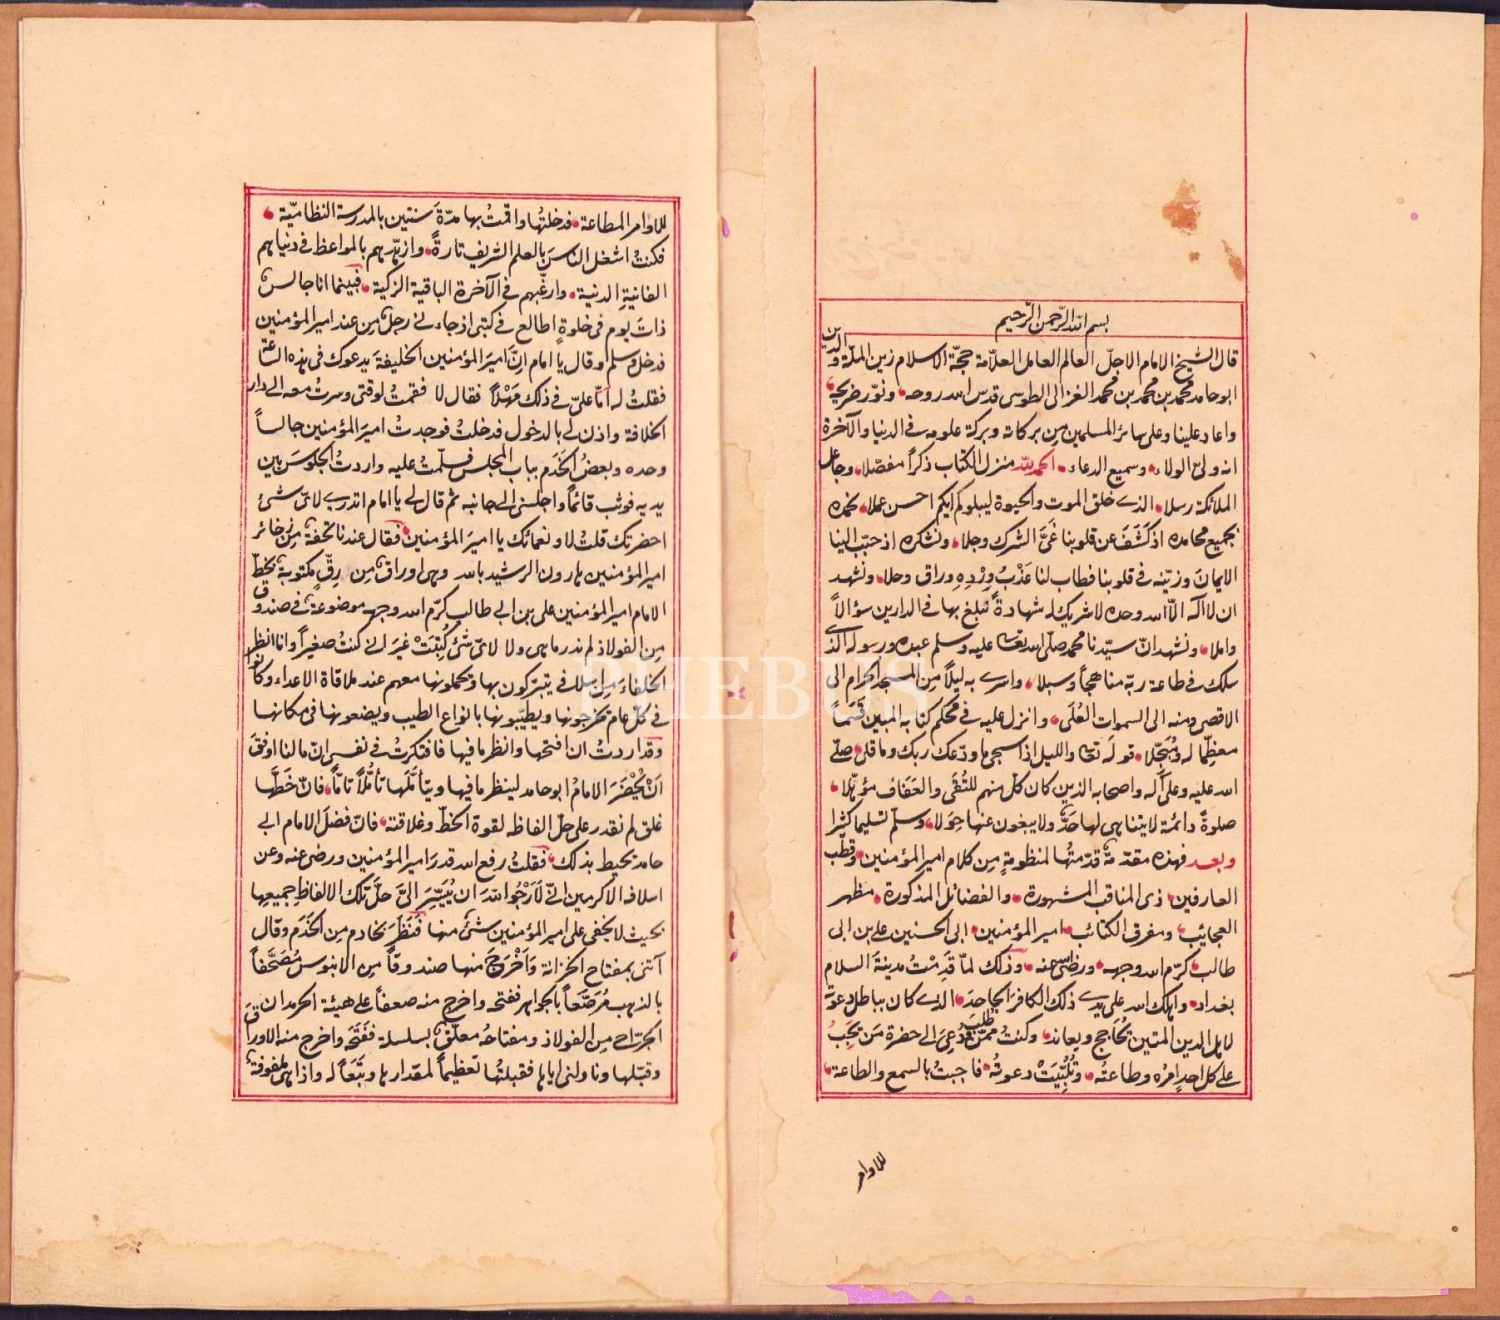 بسم الله الرّحمن الرّحيم
قال الشيخ الامام الاجلّ العالم العامل العلّامة حجّة الاسلام زين الملّة والدين
ابو حامد محمد بن محمد بن محمد الغزالى الطوسى قدس الله روحه ونوّر ضريحه
واعاد علينا وعلى سائر المسلمين من بركاته وبركة علومه فى الدنيا والآخرة
انه ولىّ الولاء وسميع الدعاء الحمد لله منزل الكتاب ذكراً مفصّلا وجاعل
الملائكة رسلا الذى خلق الموت والحيوة ليبلوكم ايكم احسن عملا نحمده
بجميع محامده اذ كَشَفَ عن قلوبنا غىّ الشرك وجلا ونشكره اذ حبّب الينا
الايمان وزيّنه فى قلوبنا فطاب لنا عَذْبُ وِرْدِهِ وراق وحلا ونشهد
ان لا اله الّا الله وحده لا شريك له شهادةً نبلغ بها فى الدارين سؤالاً
واملا ونشهد انّ سيّدنا محمد صلى الله تعالى عليه وسلم عبده ورسوله الذى
سلك فى طاعة ربّه مناهجاً وسبلا واسرى به ليلاً من المسجد الحرام الى
الاقصى ومنه الى السموات العُلَى وانزل عليه فى محكم كتابه المبين قَسَماً
معظِّما له ومُبَجِّلا قوله تعالى والليل اذا سجى ما ودّعك ربك وما قلى صلّى
الله عليه وعلى آله واصحابه الذين كان كلّ منهم للتُقَى والعَفَاف مؤهّلا
صلوةً دائمة لا يتناهى لها حَدٌّ ولا يبغون عنها حِوَلا وسلّم تسليما كثيرا
وبعد فهذه مقدّمة قدّمتُها لمنظومةٍ من كلام امير المؤمنين وقطب
العارفين ذى المناقب المشهورة والفضائل المذكورة مظهر
العجايب ومفرق الكتائب امير المؤمنين ابى الحسنين على بن ابى
طالب كرّم الله وجهه ورضى الله عنه وذلك لمّا قَدِمْتُ مدينة السلام
بغداد واهلك الله على يدى ذلك الكافر الجاحد الذى كان بباطل دعوته
لاهل الدين المتين يُحَاجِج ويعاند وكنتُ ممّن طُلِبَ ودُعِىَ الى حضرة مَن يَجِبُ
على كل احد امرُه وطاعتُه وتُلُبِّيَتْ دعوتُه فاجبتُ بالسمع والطاعة
للاوامر
للاوامر المطاعة فدخلتُها واقمتُ بها مدّة سنتين بالمدرسة النظاميّة
فكنتُ اشغل الناس بالعلم الشريف تارةً وازهّدهم بالمواعظ فى دنياهم
الفانيةِ الدنية وارغّبهم فى الآخرة الباقية الزكية فبينما انا جالس
ذات يوم فى خلوةٍ اطالع فى كتبى اذ جاءنى رجل من عند امير المؤمنين
فدخل وسلم وقال يا امام انّ اميرَ المؤمنين الخليفةَ يدعوك فى هذه الساعة
فقلتُ له أمّا علىّ فى ذلك مَهْلاً فقال لا فقمتُ لوقتى وسرتُ معه الى دار
الخلافة واذن لى بالدخول فدخلتُ فوجدتُ اميرَ المؤمنين جالساً
وحده وبعضُ الخَدَم بباب المجلس فسلّمتُ عليه واردتُ الجلوسَ بين
يديه فوثب قائماً واجلسنى الى جانبه ثم قال لى يا امام اتدرى لاىّ شئ
احضرتك قلتُ لا ونعمائك يا اميرَ المؤمنين فقال عندنا تحفةٌ من ذخائر
امير المؤمنين هارون الرشيد بالله وهى اوراقٌ من رِقٍّ مكتوبةٌ بخطّ
الامام امير المؤمنين على بن ابى طالب كرّم الله وجهه موضوعةٌ فى صندوقٍ
من الفولاذ لم ندر ما هى ولا لاىّ شئ كُتِبَتْ غير انى كنتُ صغيراً وانا انظر
الخلفاءَ من اسلافى يتبرّكون بها ويحملونها معهم عند ملاقاة الاعداء وكانوا
فى كل عام يخرجونها ويطيّبونها بانواع الطيب ويضعونها فى مكانها
وقد اردتُ ان افتحها وانظر ما فيها فافتكرتُ فى نفسى انّ ما لنا اوفق
اَنْ يُحْضَرَ الامامُ ابو حامد لينظر ما فيها ويتأمّلها تأمُّلاً تامّاً فانّ خَطَّها
غلق لم نقدر على حلّ الفاظه لقوة الخطّ وغلاقته فانّ فضلَ الامام ابى
حامد يحيط بذلك فقلتُ رفع الله قدر امير المؤمنين ورضى عنه وعن
اسلافه الاكرمين انّى لَاَرْجُو اللهَ ان يُيَسِّرَ الىَّ حلَّ تلك الالفاظِ جميعِها
بحيث لا يخفى على امير المؤمنين شئ منها فَنَظَرَ بخادم من الخَدَم وقال
آتنى بمفتاح الخزانة وَاَخْرَجَ منها صندوقاً من الابنوس مُصَفَّحاً
بالذهب مُرَصَّعاً بالجواهر ففتحه واخرج منه صعفاً على هيئة الحرمدان
الجرّاحى من الفولاذ ومفتاحُه معلّقٌ بسلسلة ففَتَحَه واخرج منه الاوراق
وقبّلها وناولنى اياها فقبلتُها تعظيماً لمقدارها وتبَعاً له واذا هى ملفوفة